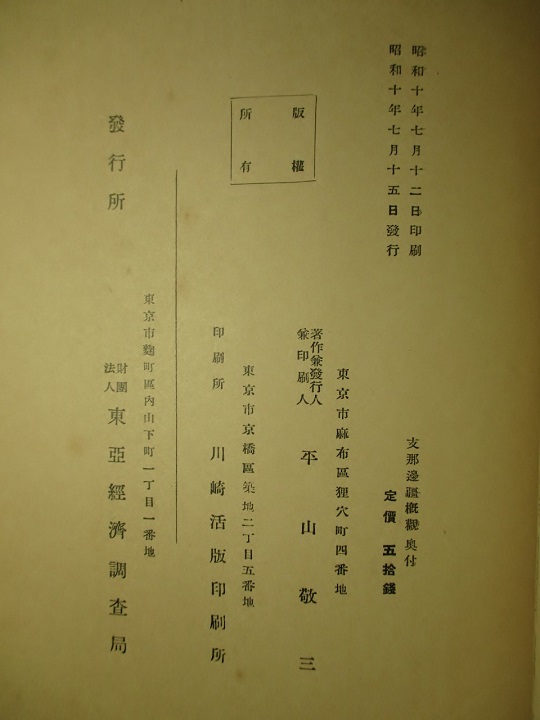 昭和十年七月十二日印刷
昭和十年七月十五日發行
支那邊疆概觀奧付
定價 五拾錢
東京市麻布區狸穴町四番地
著作兼發行人
兼印刷人
平山敬三
版權
所有
東京市京橋區築地二丁目五番地
印刷所 川崎活版印刷所
東京市麴町區內山下町一丁目一番地
發行所
財團
法人
東亞經濟調查局